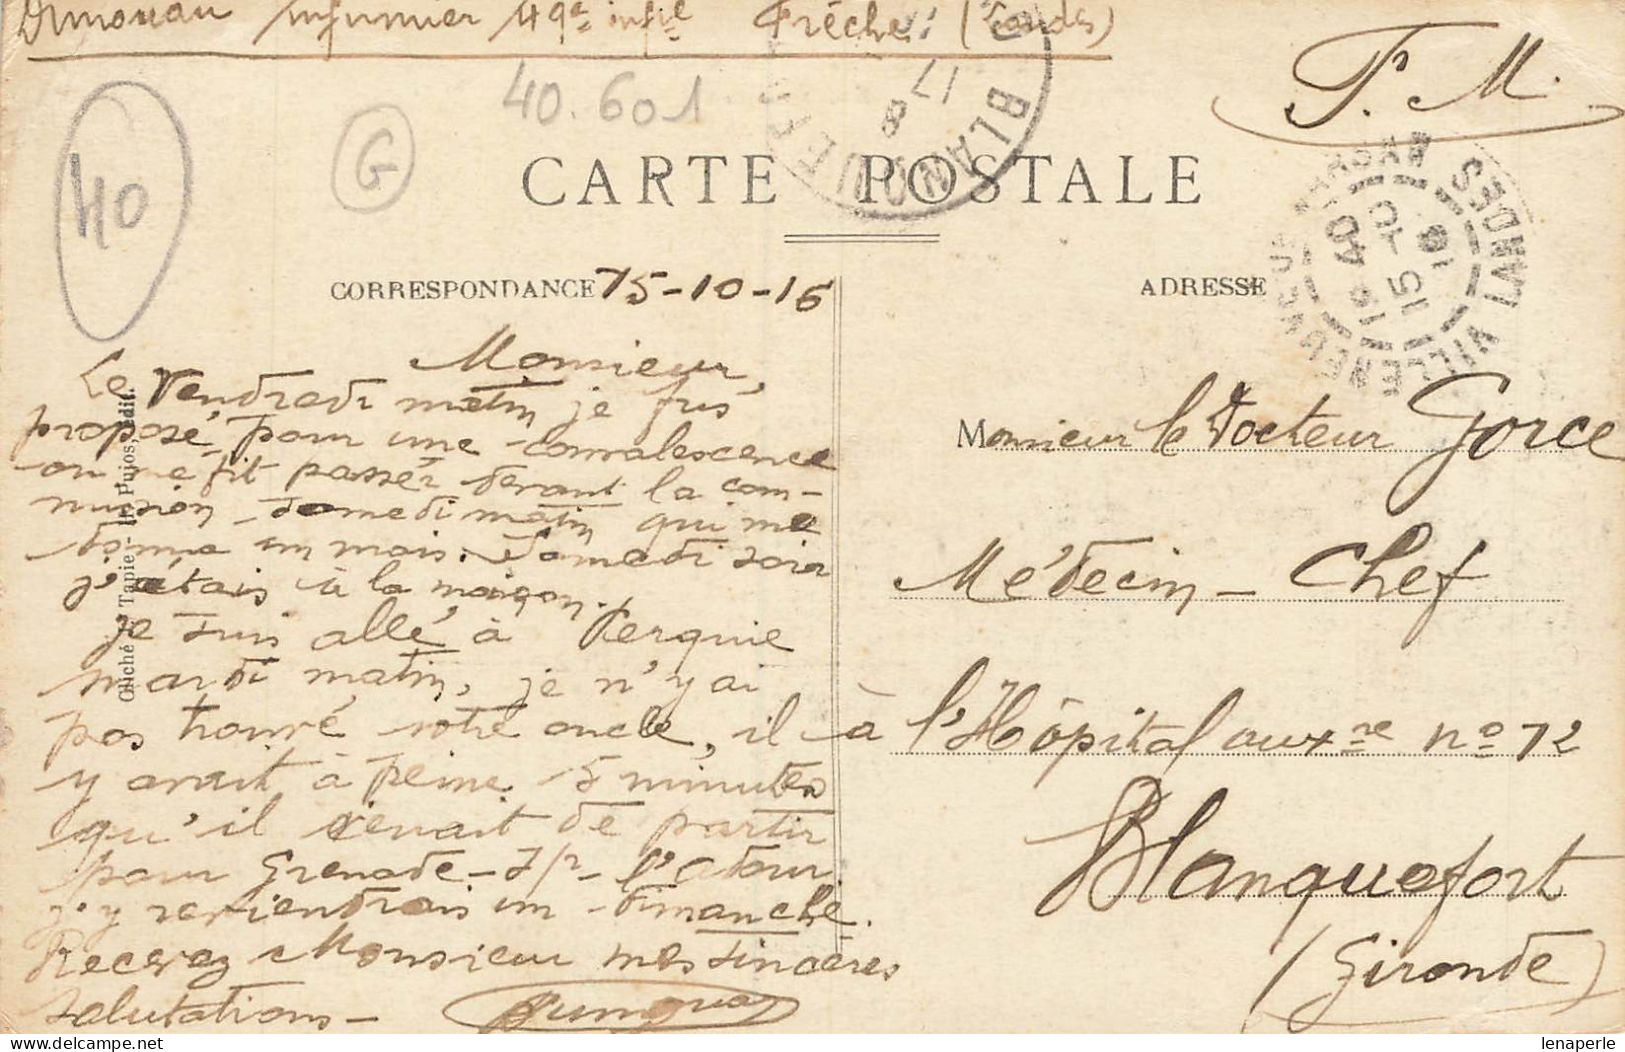 infirmier 49e infie Frêche (Landes)
F. M.
40.601
40
G
CARTE POSTALE
BLANQUEFORT
17 8
VILLENEUVE DE MARSAN LANDES
15 -10 16
CORRESPONDANCE 15-10-16
ADRESSE
Monsieur,
Le Vendredi matin je fus
proposé pour une convalescence
on me fit passer devant la com-
mission samedi matin qui me
donna un mois. Samedi soir
j'étais à la maison.
je suis allé à Perquie
mardi matin, je n'y ai
pas trouvé votre oncle, il
y avait à peine 5 minutes
qu'il venait de partir
pour Grenade-s/r-l'Adour
j'y reviendrais un dimanche.
Recevez Monsieur mes sincères
salutations -
Monsieur le Docteur Gorce
Médecin-Chef
à l'Hôpital auxre no 72
Blanquefort
(Gironde)
Cliché Tapie - Pujos, édit.
lenaperle